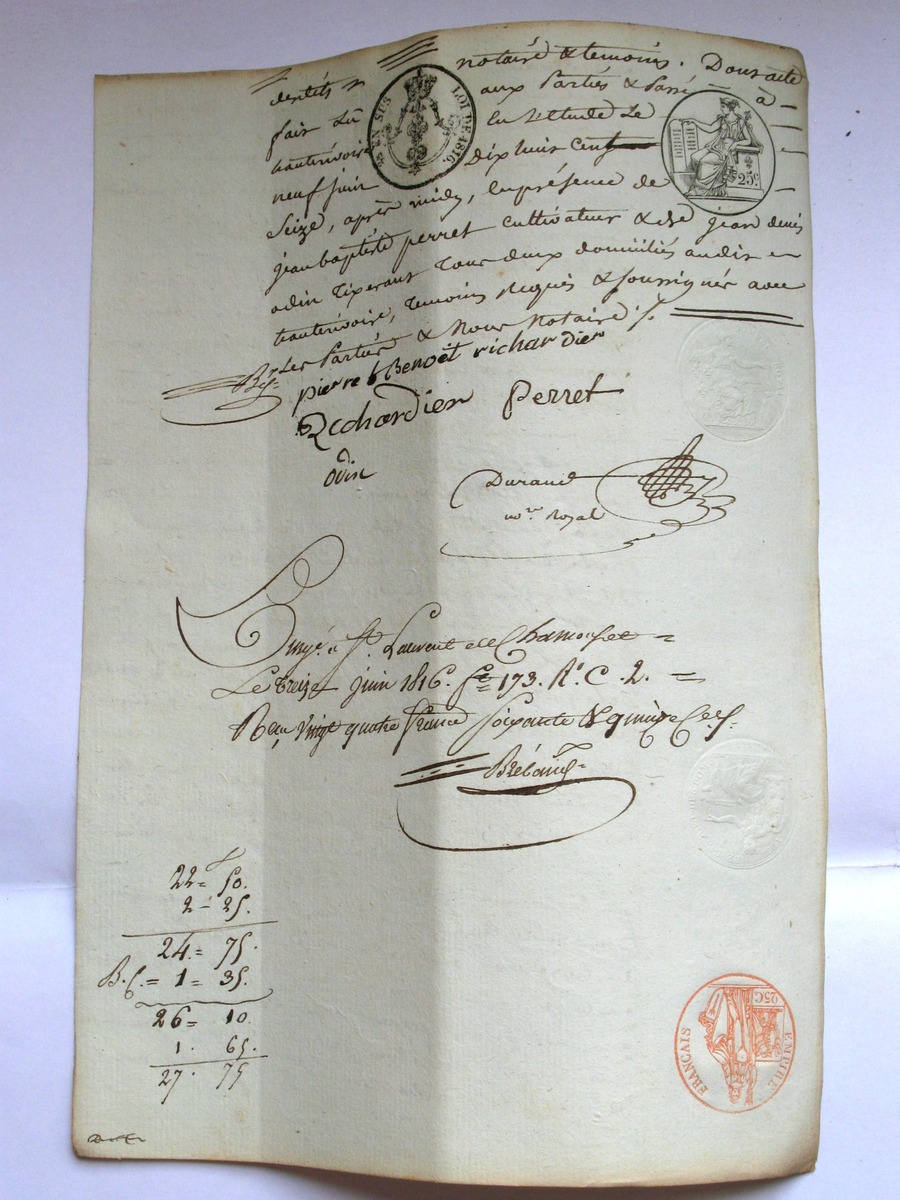 notaire & temoins. Dont acte
fait Lu aux Parties & Passé à
hauterivoire En l'Etude Le
neuf juin Dix huit Cent
Seize, après midy, En présence de
jean baptiste perret cultivateur & de jean denis
odin tixerant Tous deux domiciliés audit
hauterivoire, temoins Requis & soussignés avec
Les Parties & Nous Notaire
EN SUS LOI DE 1816.
25c.
pierre Benoit richardier
Richardier Perret
Odin
Durand
nore Royal
Enregé. à St. Laurent de Chamousset
Le treize juin 1816. fo 173. Ro. C. 2.
Reçu Vingt quatre francs soixante & quinze Ces.
Brébant
22 = 50.
2 - 25.
24 = 75.
B. C. = 1 = 35.
26 = 10
1. 65.
27. 75
EMPIRE FRANÇAIS
25C